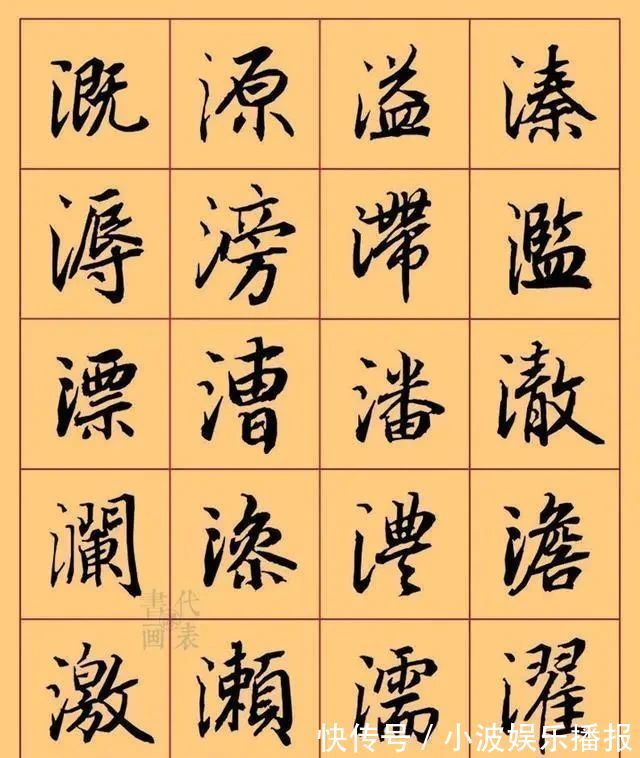 溉源溢溱
溽滂滯濫
漂漕潘澈
瀾漆澧澹
激瀨濡濯
書代
画表
快传号/小波娱乐播报